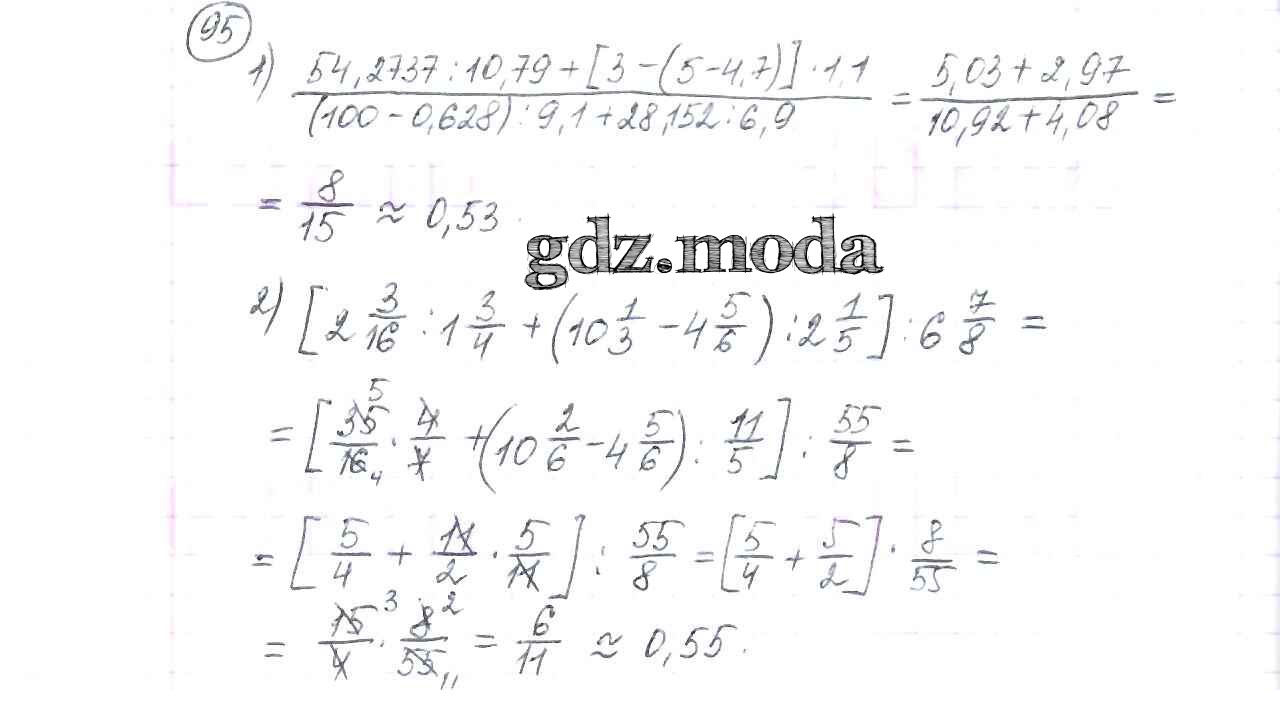 95
1) \frac{54,2737:10,79+[3-(5-4,7)]·1,1}{(100-0,628):9,1+28,152:6,9} = \frac{5,03+2,97}{10,92+4,08} =
= \frac{8}{15} ≈ 0,53.
gdz.moda
2) [2\frac{3}{16} : 1\frac{3}{4} + (10\frac{1}{3} - 4\frac{5}{6}) : 2\frac{1}{5}] : 6\frac{7}{8} =
= [\frac{35}{16} · \frac{4}{7} + (10\frac{2}{6} - 4\frac{5}{6}) : \frac{11}{5}] : \frac{55}{8} =
= [\frac{5}{4} + \frac{11}{2} · \frac{5}{11}] : \frac{55}{8} = [\frac{5}{4} + \frac{5}{2}] · \frac{8}{55} =
= \frac{15}{4} · \frac{8}{55} = \frac{6}{11} ≈ 0,55.